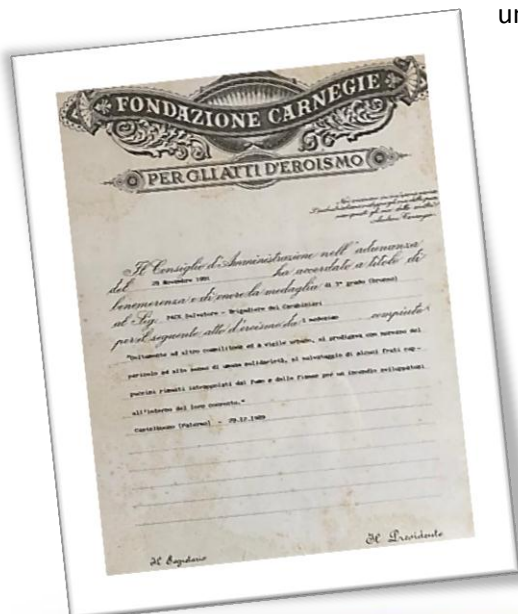 un
FONDAZIONE CARNEGIE
PER GLI ATTI D'EROISMO
Andrew Carnegie
Il Consiglio d'Amministrazione nell'adunanza
del 29 Novembre 1991 ha accordato a titolo di
benemerenza e di onore la medaglia di 3° grado (bronzo)
al Sig. PACE Salvatore - Brigadiere dei Carabinieri
per il seguente atto d'eroismo da medesimo compiuto
"Unitamente ad altro commilitone ed a vigile urbano, si prodigava con sprezzo del
pericolo ed alto senso di umana solidarietà, al salvataggio di alcuni frati cap-
puccini rimasti intrappolati dal fumo e dalle fiamme per un incendio sviluppatosi
all'interno del loro convento."
Castelbuono (Palermo) - 29.12.1989
Il Segretario
Il Presidente